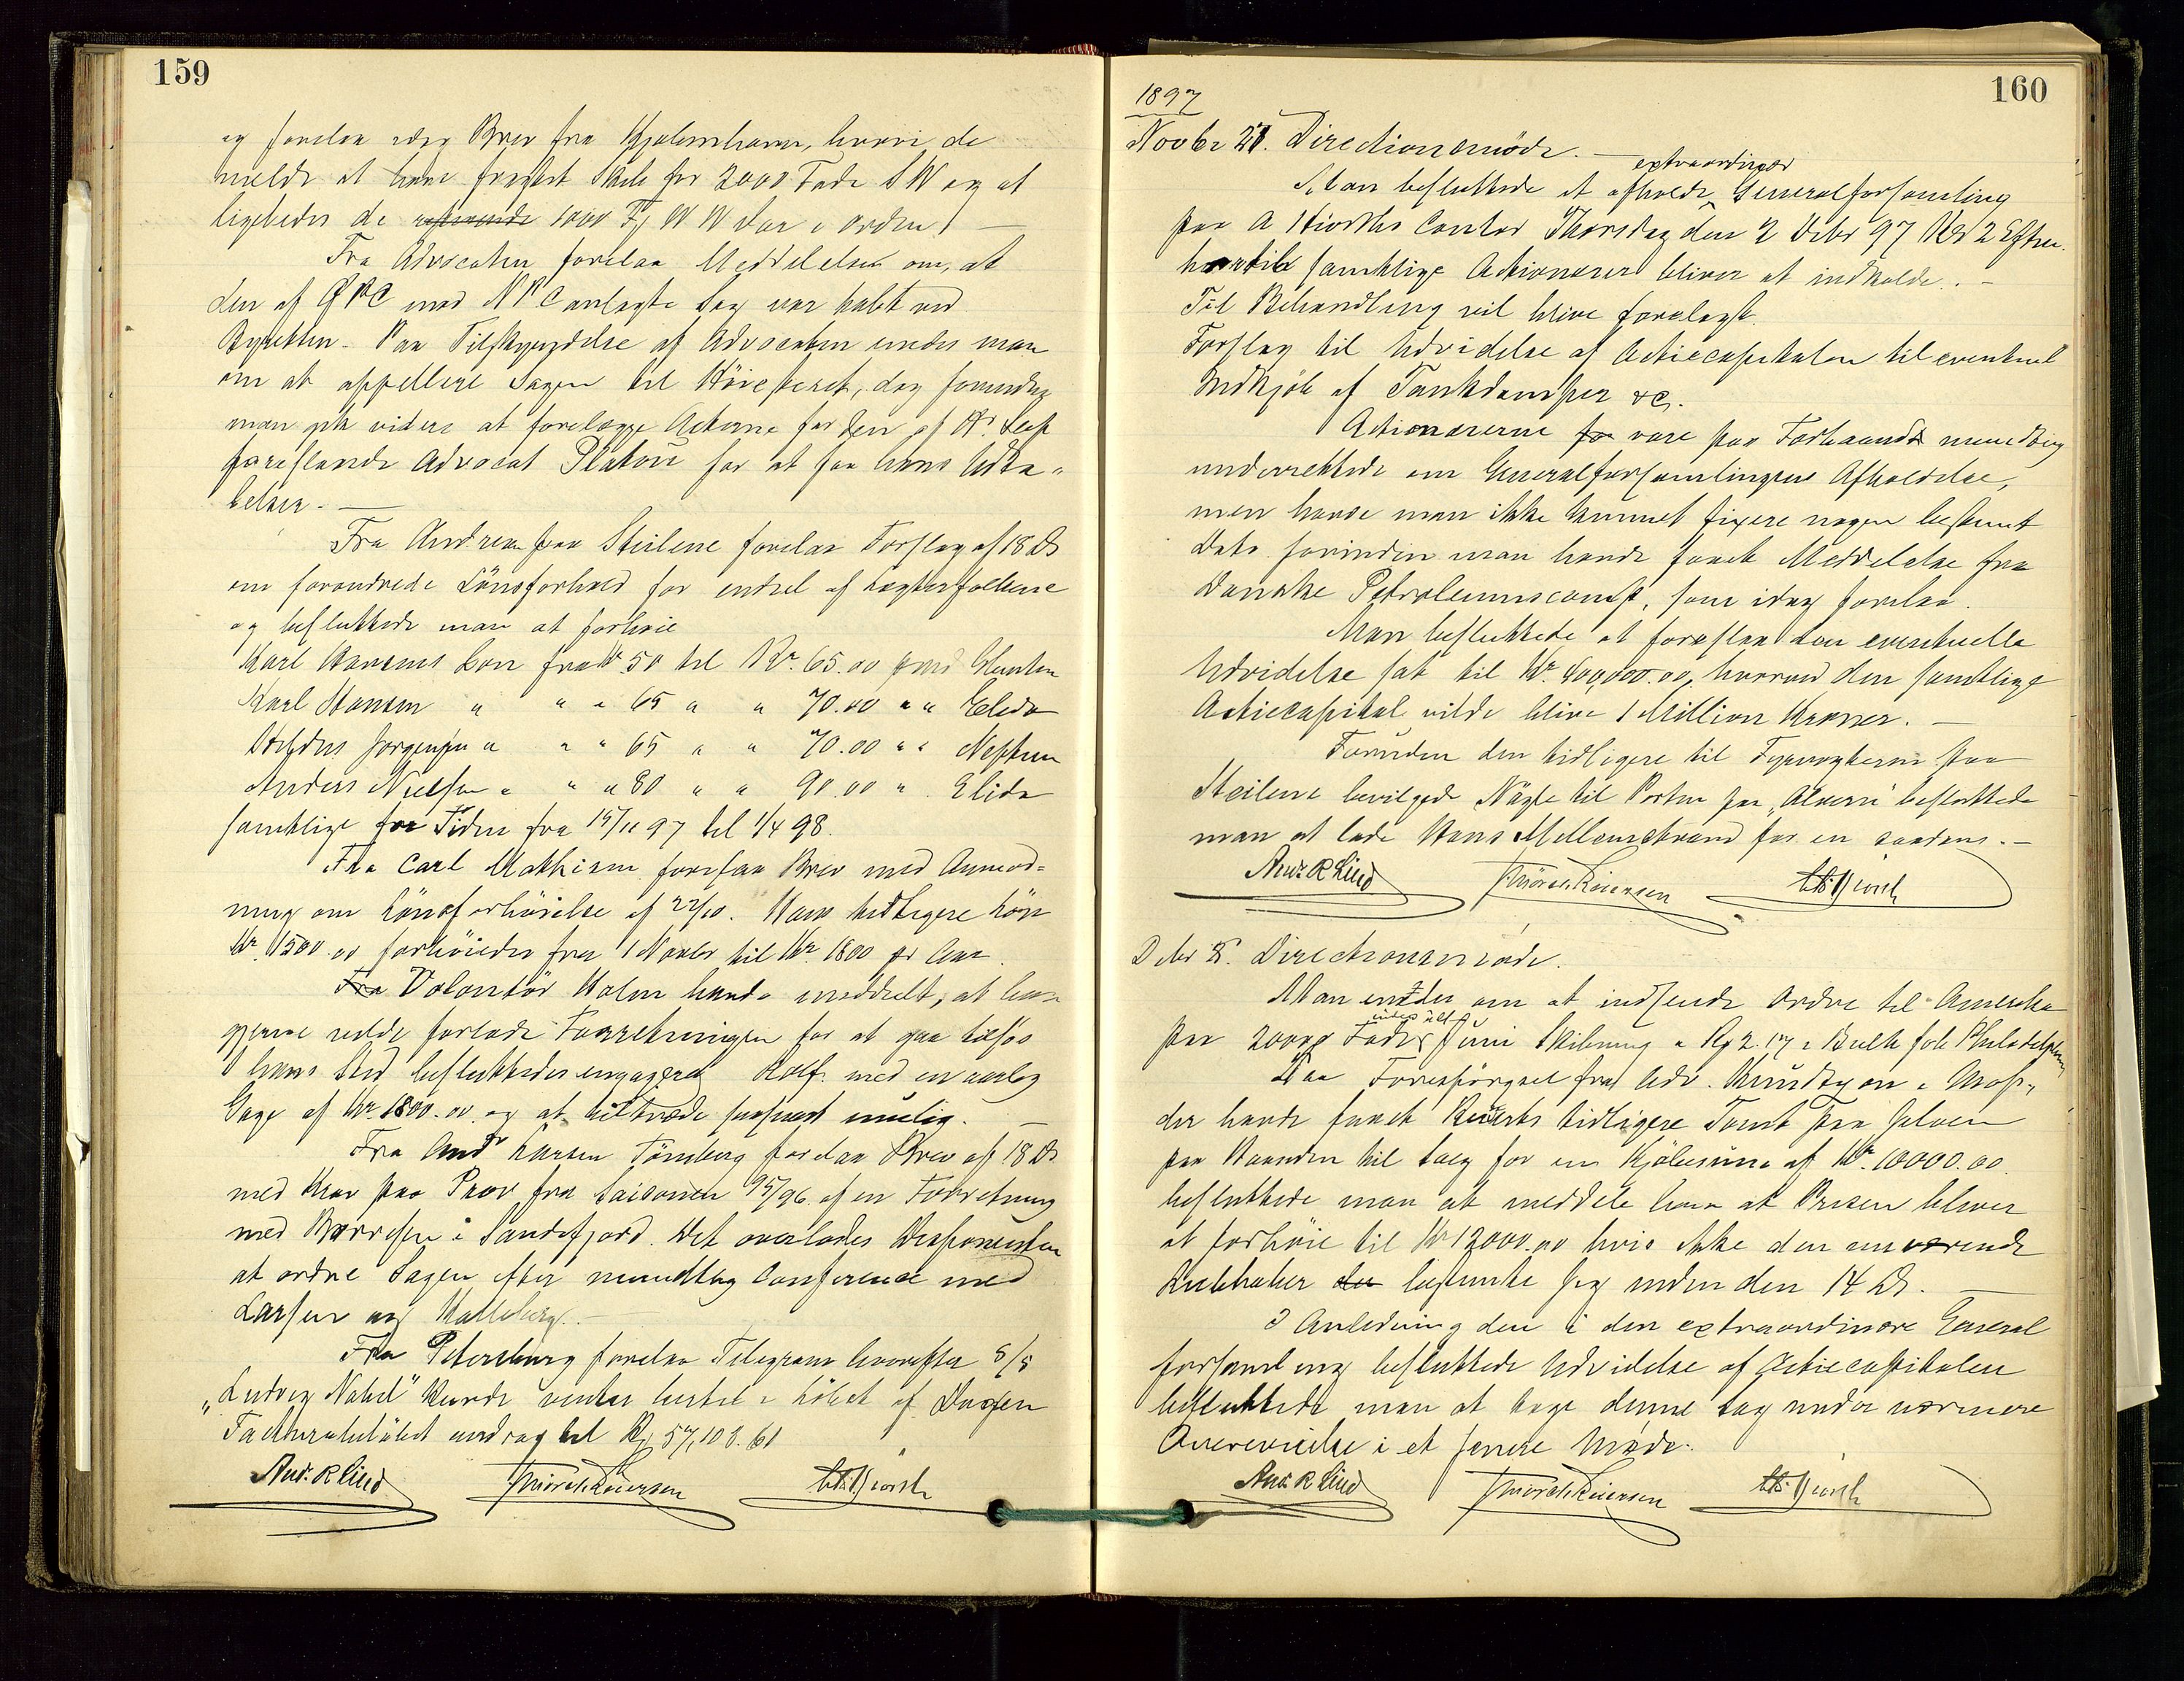 159
og forelaa idag Brev fra Kjøbenhavn, hvori de
melde at have fragtet Skib for 2000 Fade S W og at
ligeledes de resterende 1000 Fj W W var i orden. —
Fra Advocaten forelaa Meddelelse om, at
den af Ø P C mod N P C anlagte Sag var tabt ved
Byretten. Paa Tilskyndelse af Advocaten enedes man
om at appellere Sagen til Höiesteret, dog forinden
man gik videre at forelægge Acterne for den af Hr.
foreslaaede Advocat Platou for at faa hans Udta-
lelser. —
Fra Andresen paa Steilene forelaa Forslag af 18 Ds
om forandrede Lönsforhold for endel af Lægterfolkene
og besluttede man at forhöie
Karl Hansens Lön fra Kr 50 til Kr. 65.00 paa
Karl Hansen " " " 65 " " 70.00 " "
Jørgensen " " " 65 " " 70.00 " " Neptun
Anders Nielsen " " " 80 " " 90.00 " Elida
samtlige for Tiden fra 15/11 97 til 1/4 98.
Fra Carl Mathisen forelaa Brev med Anmod-
ning om Lönsforhöielse af 22/10. Hans tidligere Lön
Kr. 1500.00 forhöiedes fra 1 Novbr til Kr. 1800 pr Aar.
Fra Volontör Holm havde meddelt, at han
gjerne vilde forlade Forretningen for at gaa tilsös
I hans Sted besluttedes engageret Rolf med en aarlig
Gage af Kr. 1800.00 og at tiltræde snarest mulig. —
Fra Andr Larsen Tönsberg forelaa Brev af 18 Ds
med Krav paa Prov fra Saisonen 95/96 af en Forretning
med Børresen i Sandefjord. Det overlodes Disponenten
at ordne Sagen efter mundtlig Conference med
Larsen og Halleberg. —
Fra Petersburg forelaa Telegram hvorefter S/S
"Ludvig Nobel" kunde ventes lastet i Löbet af Dagen
Facturabelöbet androg til Rj 57,108.61
And. R Lind Thorvald Reiersen Hiorth
160
1897
Novbr 27. Directionsmöde. —
extraordinær
Man besluttede at afholde Generalforsamling
paa A Hiorths Contor Thorsdag den 2 Decbr 97 Kl 2 Efterm.
hvortil samtlige Actionærer bliver at indkalde. —
Til Behandling vil blive forelagt
Forslag til Udvidelse af Actiecapitalen til eventuel
Indkjöb af Tankdamper &c.
Actionærerne vare paa Forhaand mundtlig
underrettede om Generalforsamlingens Afholdelse,
men havde man ikke kunnet fixere nogen bestemt
Dato forinden man havde faaet Meddelelse fra
Danske Petroleumscomp., som idag forelaa.
Man besluttede at foreslaa den eventuelle
Udvidelse sat til Kr. 400,000.00, hvorved den samtlige
Actiecapital vilde blive 1 Million Kroner. —
Foruden den tidligere til Fyrvogterne paa
Steilene bevilgede Nögle til Porten paa "Alværn" besluttede
man at lade Hans Mellemstrand faa en saadan. —
And. R Lind Thorvald Reiersen Hiorth
Decbr 8. Directionsmöde.
Man enedes om at indsende Ordre til Amerika
paa 20000 Fade Juni Skibning a Rj 2.17 i Bulk fob Philadelphia
Paa Forespörgsel fra Adv. Knudtzon i Moss,
der havde faaet Kuierts tidligere Tomt paa Jeløen
paa Haanden til Salg for en Kjöbesum af Kr. 10000.00.
besluttede man at meddele ham at Prisen bliver
at forhöie til Kr 12000.00 hvis ikke den nuværende
Liebhaber bestemte sig inden den 14 Ds. —
I Anledning den i den extraordinære General
forsamling besluttede Udvidelse af Actiecapitalen
besluttede man at tage denne Sag under nærmere
Overveielse i et senere Möde.
And. R Lind Thorvald Reiersen Hiorth